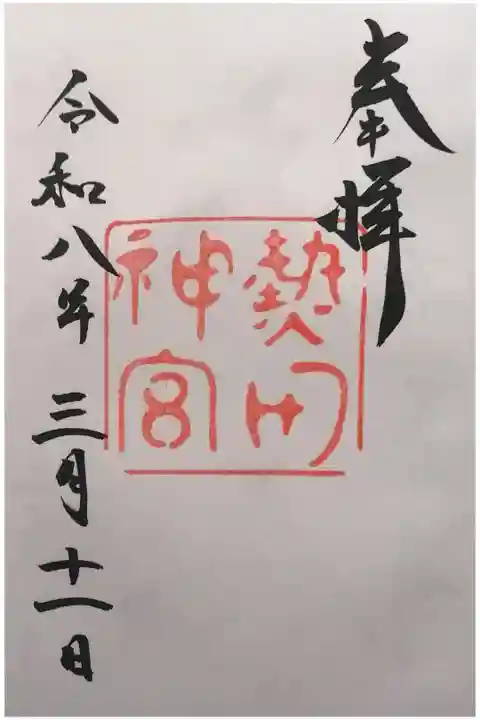 奉拝
熱田
神宮
令和八年 三月十一日